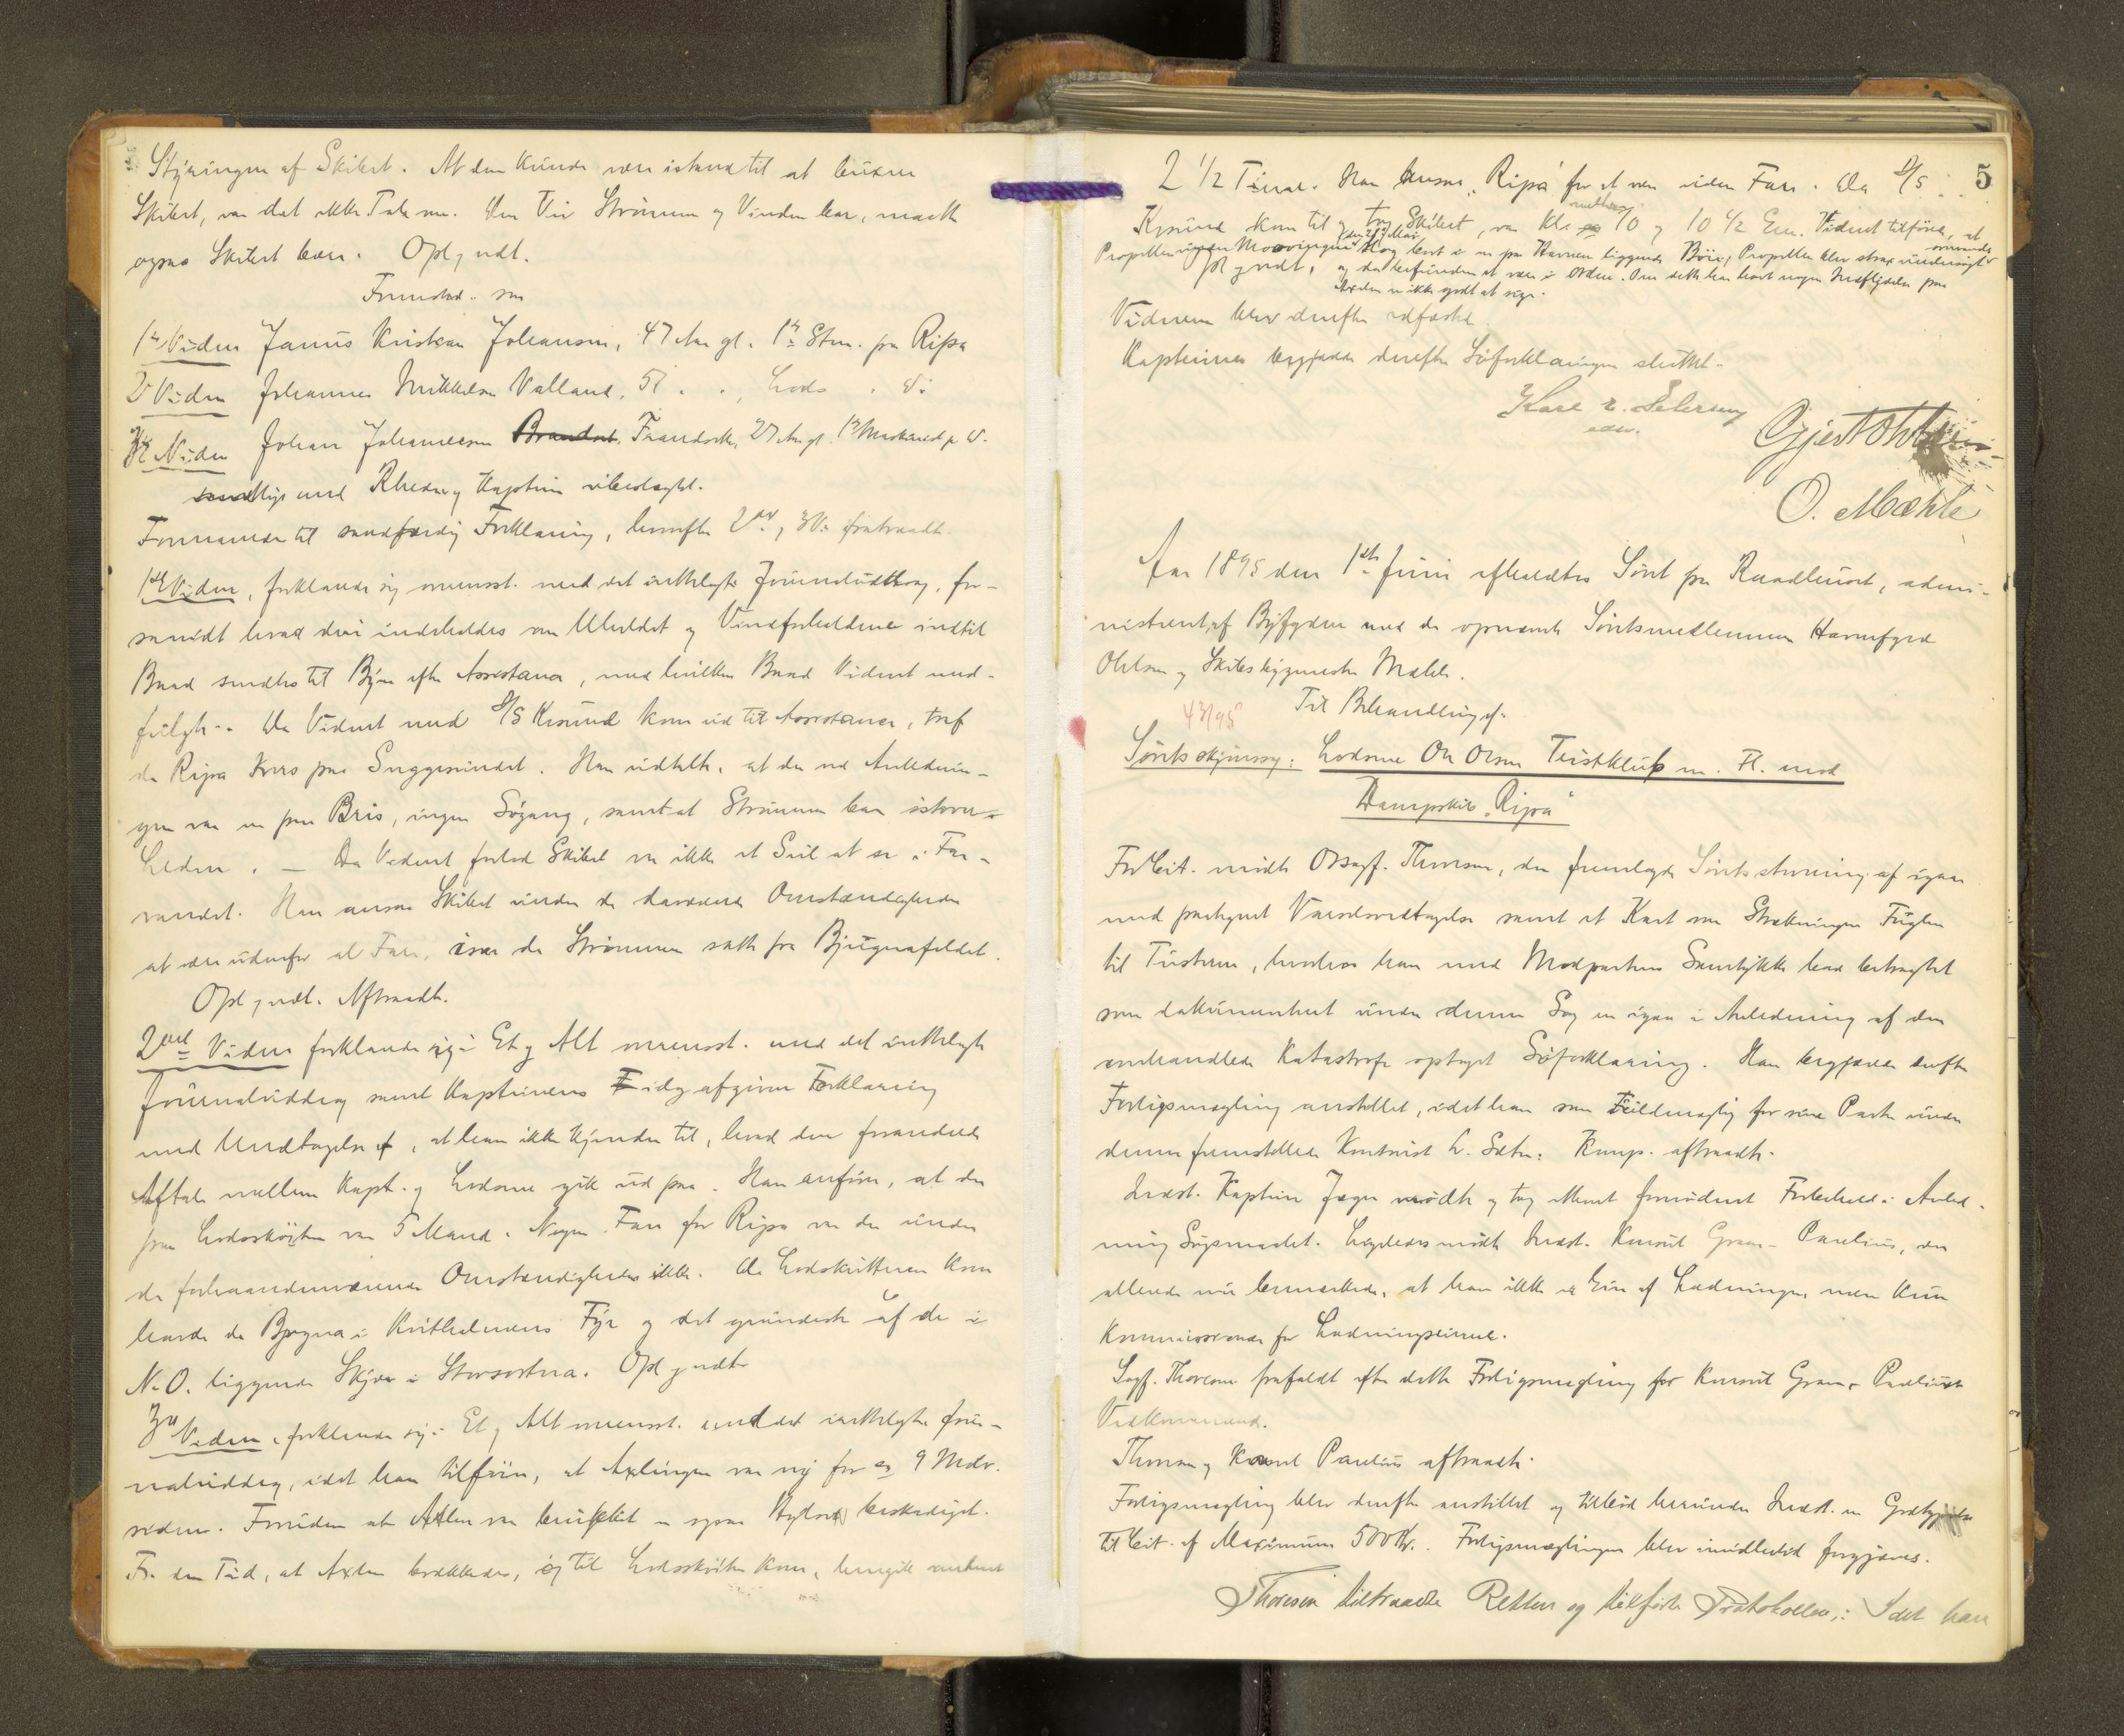 Styringen af Skibet. At den kunde være istand til at buxere
Skibet, var det ikke Tale om. Den Vei Strømmen og Vinden bar, maatte
ogsaa Skibet bære. Opl. vedt.
Fremstod som
1ste Vidne Janus Kristian Johansen, 47 Aar gl. 1ste Strm. paa Ripa
2d Vidne Johannes Mikkelsen Valland, 51 " ", Lods " D:
3die Vidne Johan Johannesen Brandsit. Frandsche, 27 Aar gl. 1ste Maskinist p D.
samtlige med Rheder og Kaptein ubeslægtet.
Formanedes til sandfærdig Forklaring, hvorefter 2det og 3die fratraadte.
1ste Vidne, forklarede sig overensst. med det indtelegte Journaludtog, for-
saavidt hvad deri indeholdes om Uheldet og Vindforholdene indtil
Baad sendtes til Byen efter Assistance, med hvilken Baad Vidnet med-
fulgte. Da Vidnet med D/S Krsund kom ud til Assistance, traf
de Ripa tvers paa Suggesundet. Han udtalte, at der ved Anlednin-
gen var en pen Bris, ingen Søgang, samt at Strømmen bar istover
Leden. – Da Vidnet forlod Skibet var ikke et Seil at se i Far-
vandet. Han ansaa Skibet under de daværende Omstændigheder
at være udenfor al Fare, især da Strømmen satte fra Bjugnafeldet.
Opl. vedt. Aftraadte.
2det Vidne forklarede sig i Et og Alt overensst. med det indtelegte
Journaluddrag samt Kapteinens idag afgivne Forklaring
med Undtagelse af, at han ikke kjender til, hvad den forandrede
Aftale mellem Kapt. og Lodserne gik ud paa. Han anfører, at der
paa Lodsskøiten var 5 Mand. Nogen Fare for Ripa var der under
de forhaandenværende Omstændigheder ikke. Da Lodskutteren kom
havde de Bjugna i Kvitholmens Fyr og det grundeste af de i
N.O. liggende Skjær i Storsortna. Opl. og vedt.
3die Vidne, forklarede sig i Et og Alt overensst. med det indtelegte Jour-
naluddrag, idet han tilføier, at Axlingen var ny for ca 9 Mdr.
siden. Foruden at Axlen var brukket er ogsaa Hylsen beskadiget.
Fra den Tid, at Axlen brækkedes, og til Lodsskøiten kom, hengik omtrent
5
2 1/2 Time. Han ansaa "Ripa" for at være uden Fare. Da D/S
Krsund kom til og tog Skibet, var Kl. ca mellem 10 og 10 1/2 Em. Vidnet tilføier, at
Propellen under Manøvringen den 29 Mai slog bort i en paa Havnen liggende Bøie, Propellen blev strax undersøgt ovenvande
Opl. og vedt. og da befunden at være i Orden. Om dette har havt nogen Indflydelse paa
Axlen er ikke godt at sige.
Vidnerne blev derefter edfæstet.
Kapteinen begjærede derefter Søforklaringen sluttet.
Gjert Ohlsen
O. Mæhle
Aar 1895 den 1ste Juni afholdtes Søret paa Raadhuset, admi-
nistreret af Byfogden med de opnævnte Søretsmedlemmer Havnefoged
Ohlsen og Skibsbygmester Mæhle.
Til Behandling af:
43/95
Søretsskjønssag: Lodserne Ole Olsen Tustklub m. Fl. mod
Dampskib "Ripa"
For Cit. mødte Ossagf. Thoresen, der fremlagde Søretsstevning af igaar
med paategnet Varselsvedtagelse samt et Kart over Strækningen Fuglen
til Tusteren, hvorhos han med Modpartens Samtykke bad betragtet
som dokumenteret under denne Sag en igaar i Anledning af den
omhandlede Katastrofe optaget Søforklaring. Han begjærede derefter
Forligsmægling anstillet, idet han som Fuldmægtig for sine Parter under
denne fremstillede Kontorist L. Sæter. Komp. aftraadte.
Indst. Kaptein Jæger mødte og tog ethvert fornødent Forbehold i Anled-
ning Søgsmaalet. Ligeledes mødte Indst. Konsul Gram-Parelius, der
allerede nu bemærkede, at han ikke er Eier af Ladningen men kun
Kommissionær for Ladningseierne.
Sagf. Thoresen frafaldt efter dette Forligsmægling for Konsul Gram-Parelius
Vedkommende.
Thoresen og Konsul Parelius aftraadte.
Forligsmægling blev derefter anstillet og tilbød herunder Indst. en Godtgjørelse
til Cit. af Maximum 500 Kr. Forligsmæglingen blev imidlertid forgjæves.
Thoresen tiltraadte Retten og tilførte Protokollen: Idet han